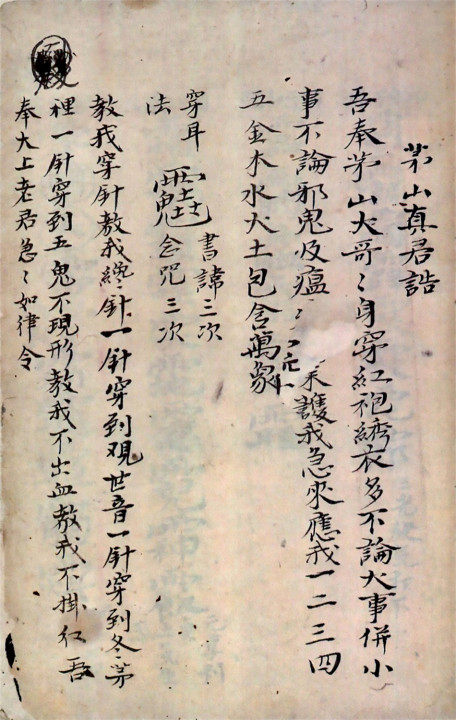 茅山真君誥
吾奉茅山大哥〻身穿紅袍綉衣多不論大事併小
事不論邪鬼及瘟 来護我急來應我一二三四
五金木水火土包含萬象
穿耳 書諱三次
法 念咒三次
教我穿針教我纔針一針穿到观世音一針穿到冬茅
裡一針穿到五鬼不現形教我不出血教我不掛红吾
奉大上老君急〻如律令